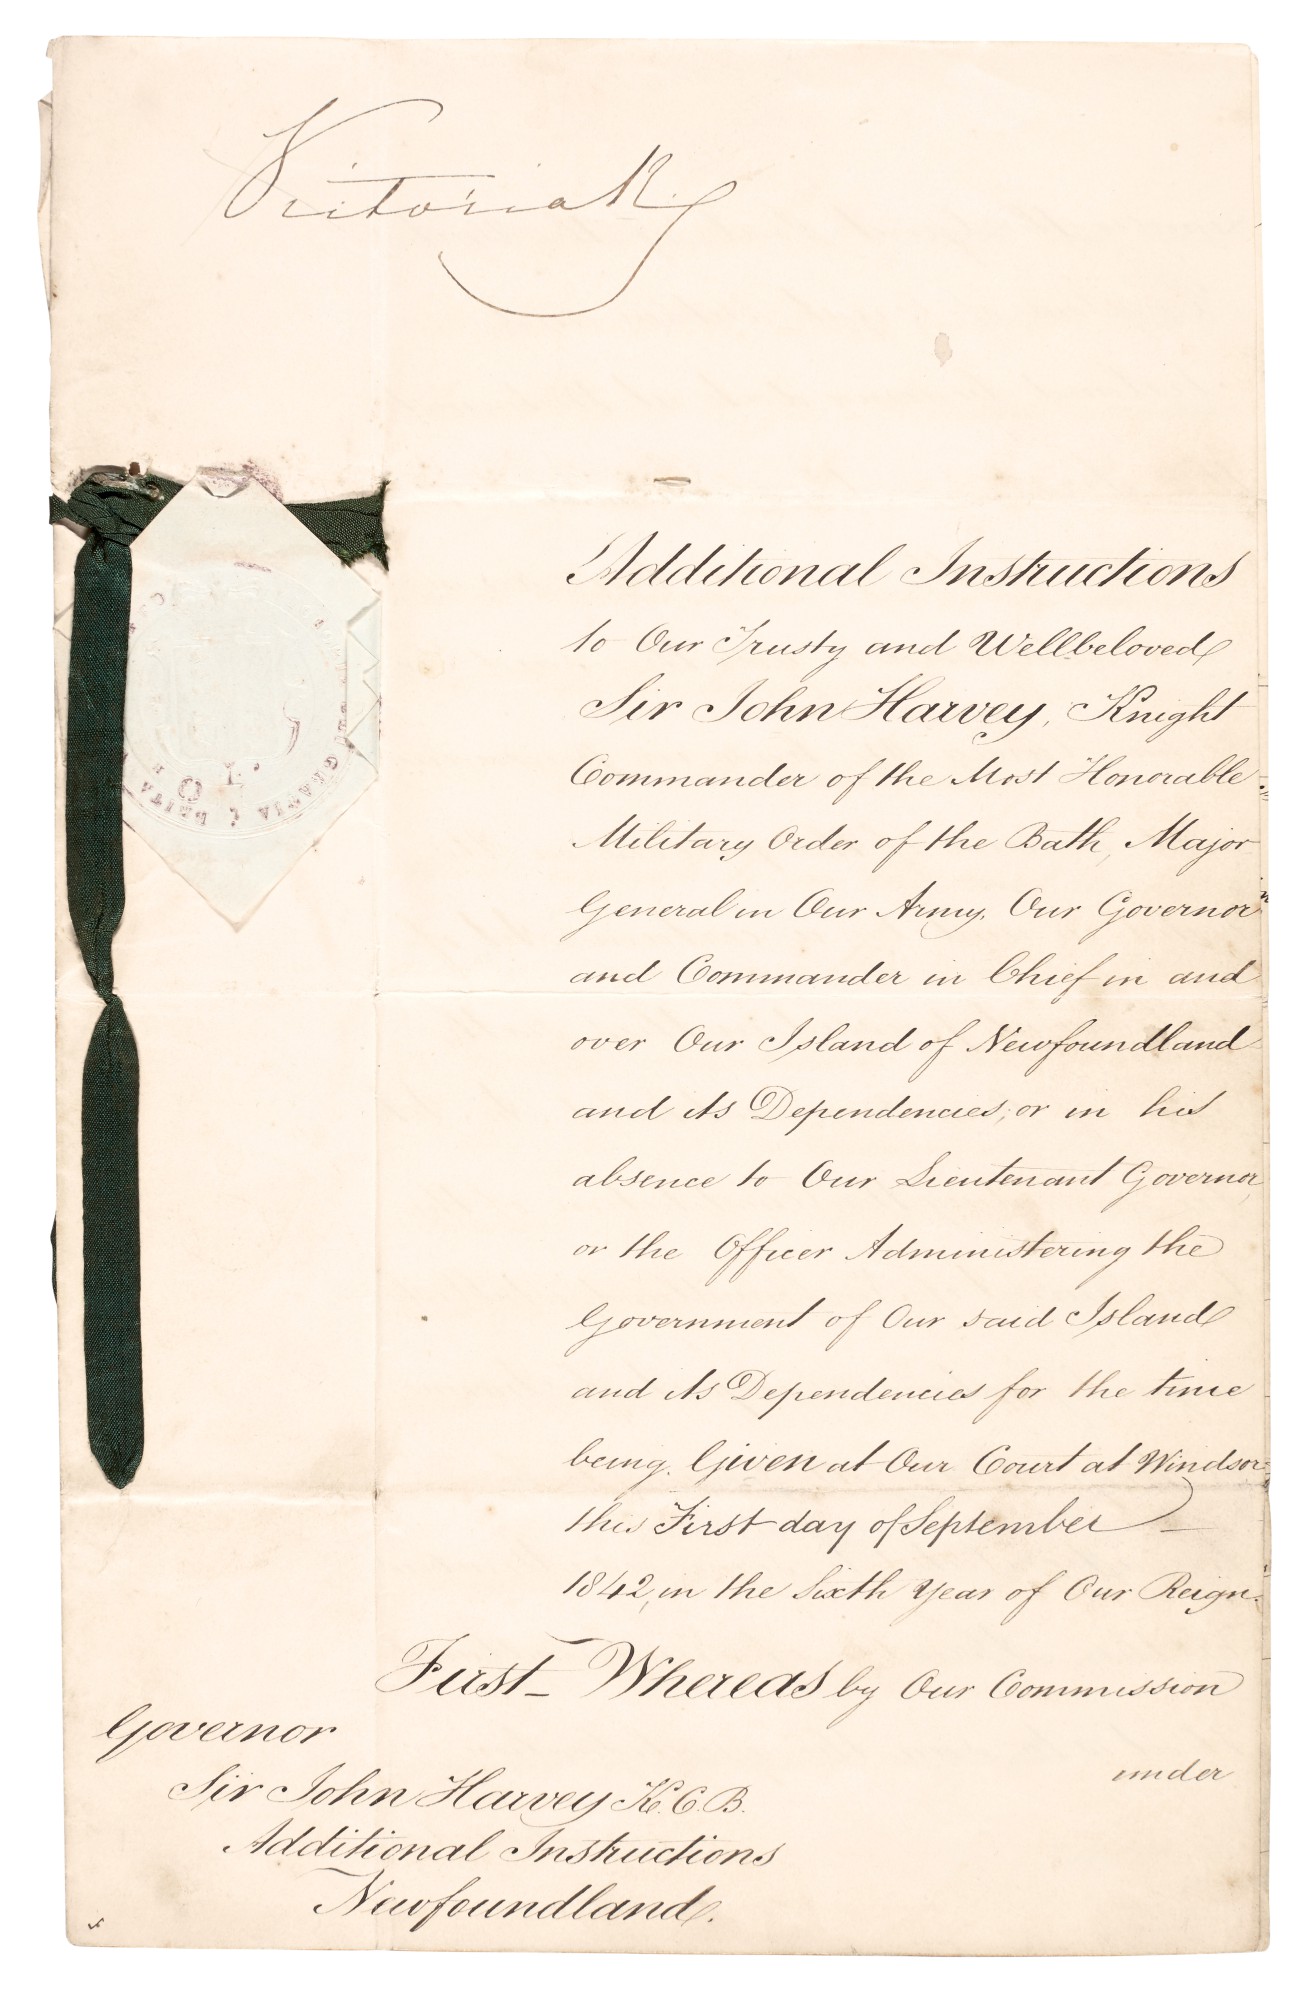 Victoria R.
Additional Instructions
to Our Trusty and Wellbeloved
Sir John Harvey, Knight
Commander of the Most Honorable
Military Order of the Bath, Major
General in Our Army, Our Governor
and Commander in Chief in and
over Our Island of Newfoundland
and its Dependencies, or in his
absence to Our Lieutenant Governor,
or the Officer Administering the
Government of Our said Island
and its Dependencies for the time
being. Given at Our Court at Windsor
this First day of September
1842, in the Sixth Year of Our Reign.
First_ Whereas by Our Commission
under
Governor
Sir John Harvey K.C.B.
Additional Instructions
Newfoundland.
GRATIA BRITA